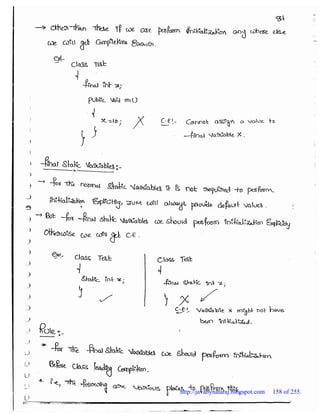 → other than these if we are perform initialization any where else
we will get Compiletime Error.
Eg:-
Class Test
{
final int x;
Public Void m1()
{
x=10; X C.E!. Cannot assign a value to
final Variable x.
}
}
final static Variables:-
→ for the normal static Variables it is not required to perform
initialization Explicitly, JVM will always provide default values.
→ But for final static Variables we should perform initialization Explicitly
Otherwise we will get C.E.
Eg:- Class Test
{
static int x;
}
✓
Class Test
{
final static int x;
} X
C.E!. Variable x might not have
been initialized.
Rule:-
* for the final static Variables we should perform initialization
Before class loading Completion.
* i.e, the following are various places to perform this
http://javabynataraj.blogspot.com 158 of 255.